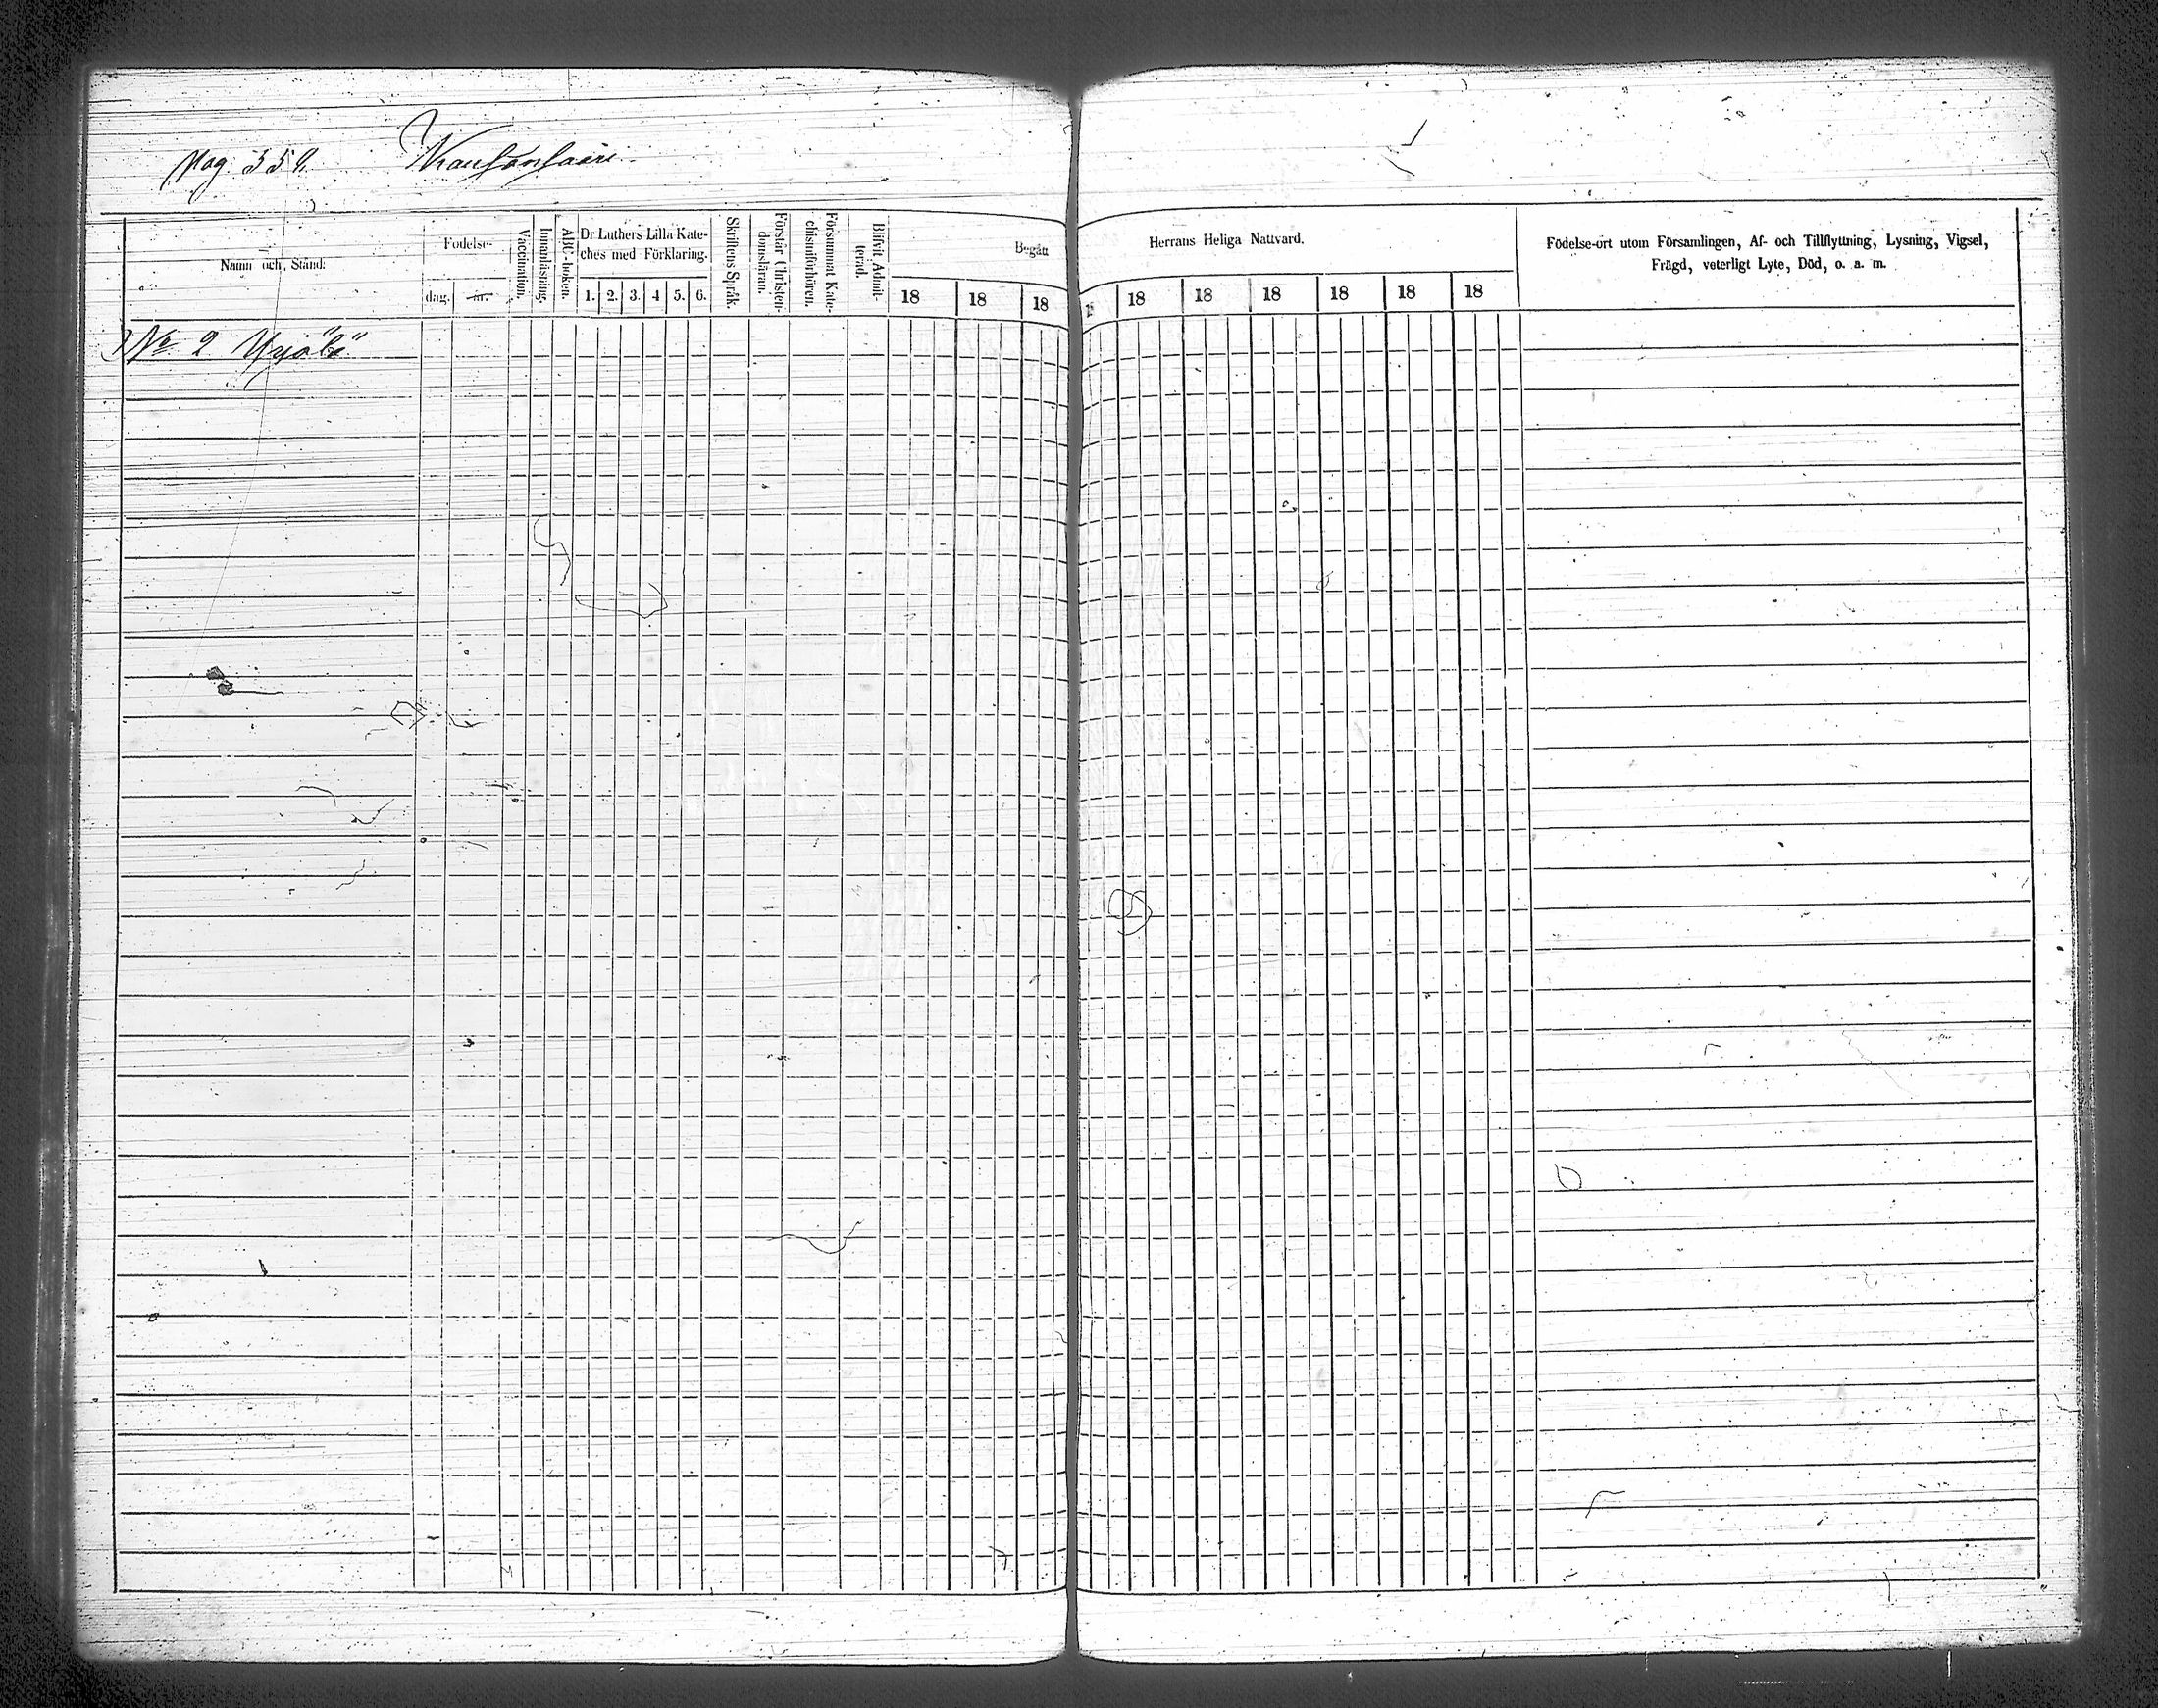 Pag. 352.
Namn och Stånd.
Födelse-
dag.
år.
Vaccination.
Innanläsning.
ABC-boken.
Dr Luthers Lilla Kate-
ches med Förklaring.
1. 2. 3. 4 5. 6.
Skriftens Språk.
Förstår Christen-
domsläran.
Försummat Kate-
chismiförhören.
Blifvit Admit-
terad.
Begått
Herrans Heliga Nattvard.
18 18 18 18 18 18 18 18 18
Födelse-ort utom Församlingen, Af- och Tillflyttning, Lysning, Vigsel,
Frägd, veterligt Lyte, Död, o. a. m.
No 2 Yrjölä